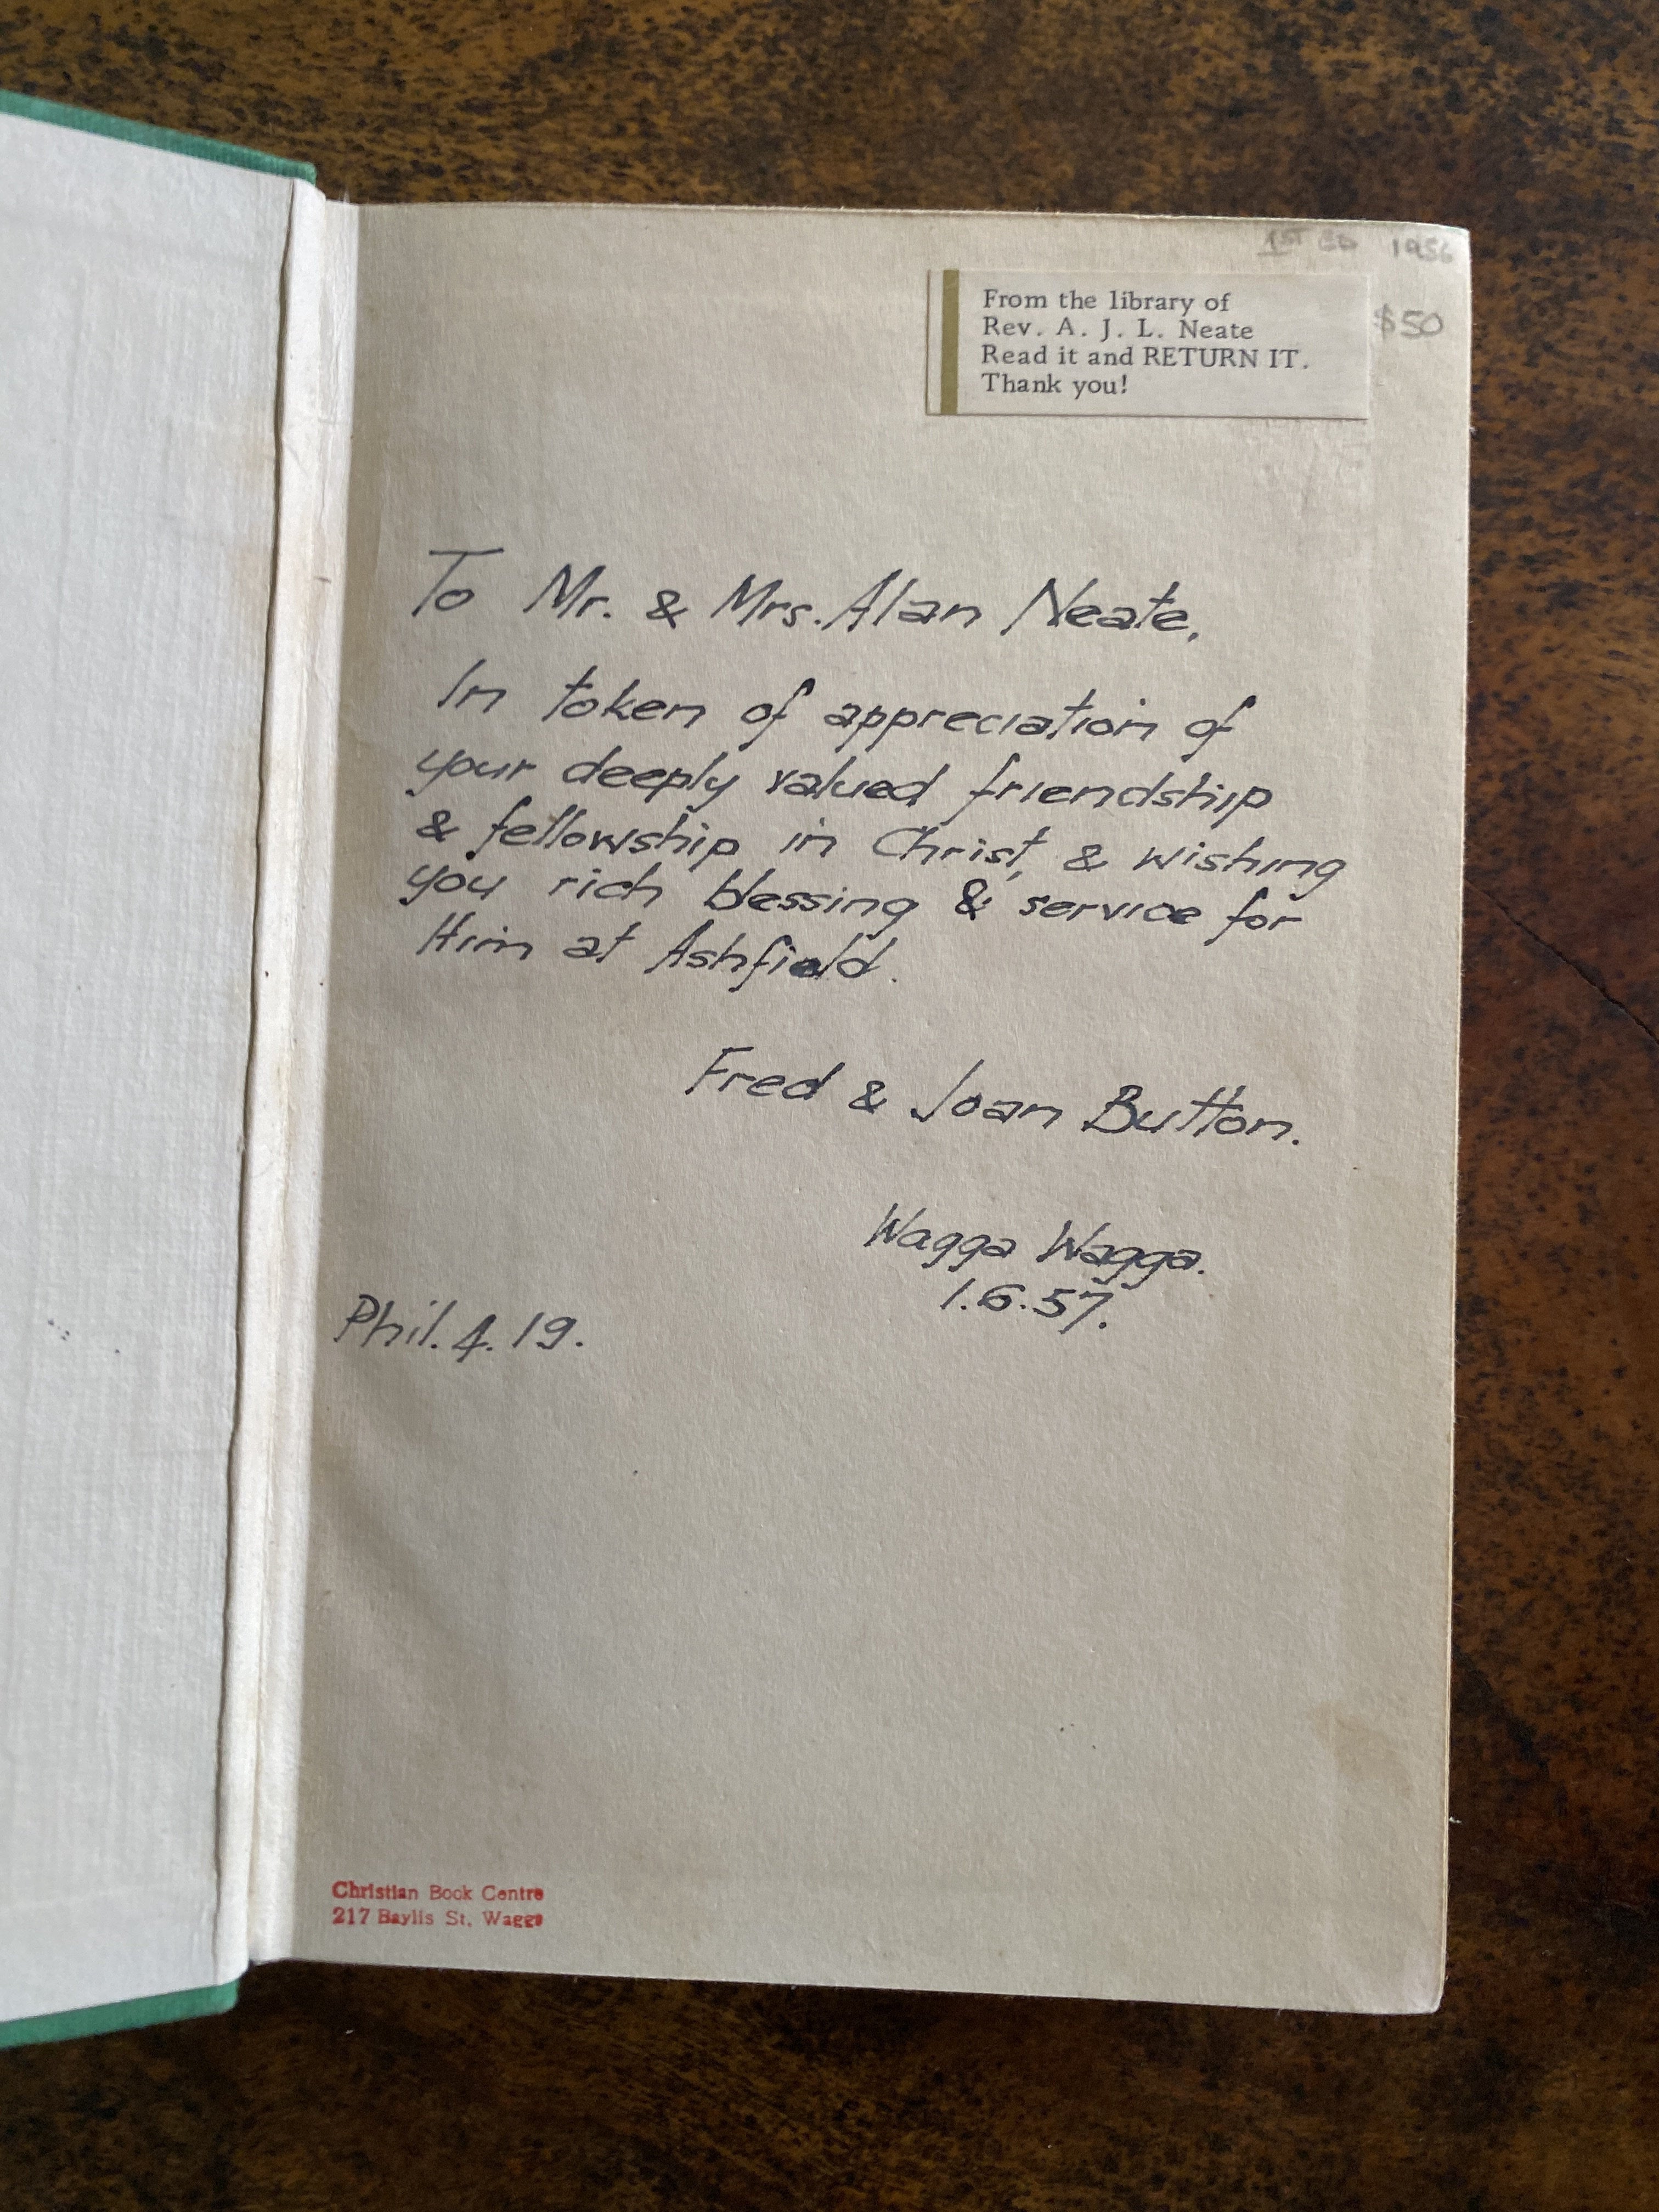 1ST ED 1956
From the library of
Rev. A. J. L. Neate
Read it and RETURN IT.
Thank you!
$50
To Mr. & Mrs. Alan Neate,
In token of appreciation of
your deeply valued friendship
& fellowship in Christ, & wishing
you rich blessing & service for
Him at Ashfield.
Fred & Joan Button.
Wagga Wagga.
1.6.57.
Phil. 4. 19.
Christian Book Centre
217 Baylis St, Wagga